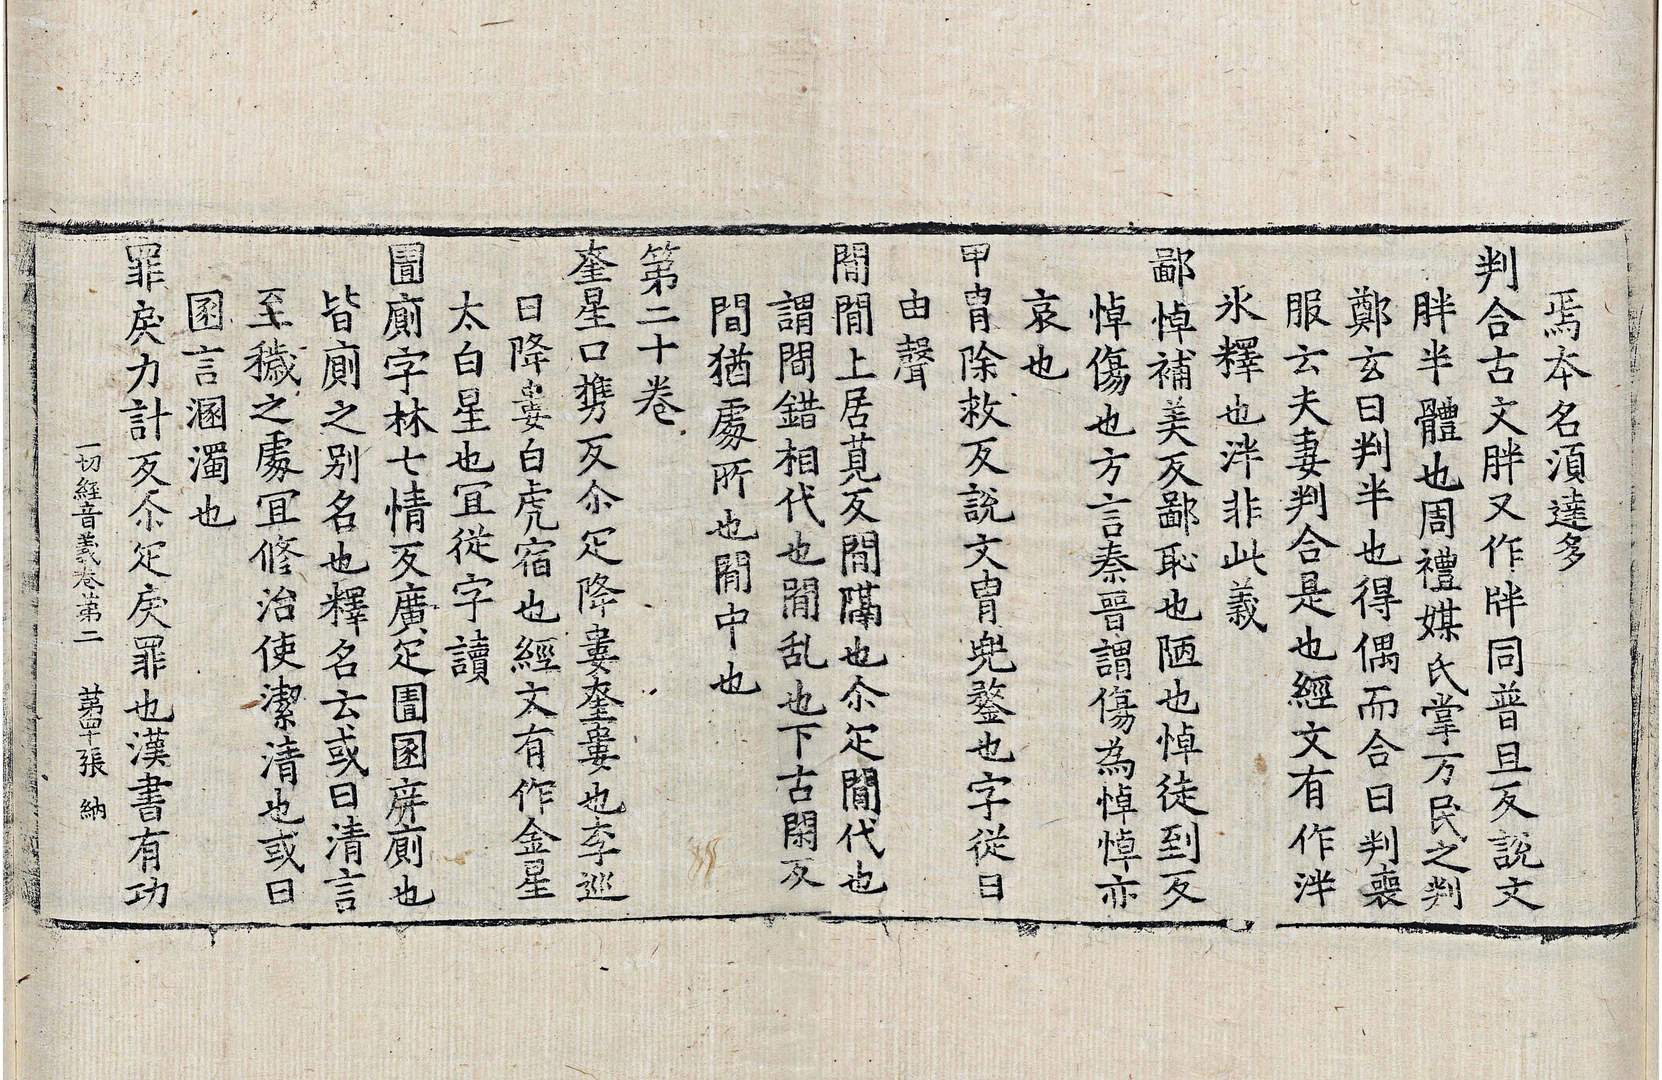 焉本名湏達多
判合古文胖又作牉同普旦反說文
胖半體也周禮媒氏掌万民之判
鄭玄曰判半也得偶而合曰判喪
服云夫妻判合是也經文有作泮
氷釋也泮非此義
鄙悼補美反鄙恥也陋也悼徒到反
悼傷也方言秦晉謂傷為悼悼亦
哀也
甲冑除救反說文冑兜鍪也字從曰
由聲
閒閒上居莧反閒隔也尒疋閒代也
謂閒錯相代也閒乱也下古閑反
間猶處所也閒中也
第二十卷
奎星口携反尒疋降婁奎婁也李巡
曰降婁白虎宿也經文有作金星
太白星也冝從字讀
圊廁字林七情反廣疋圊圂庰廁也
皆廁之别名也釋名云或曰清言
至穢之處冝修治使潔清也或曰
圂言溷濁也
罪戾力計反尒疋戾罪也漢書有功
一切經音義卷第二 第四十張 納